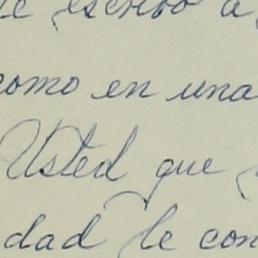 escribo a
como en una
Usted que
dad le con